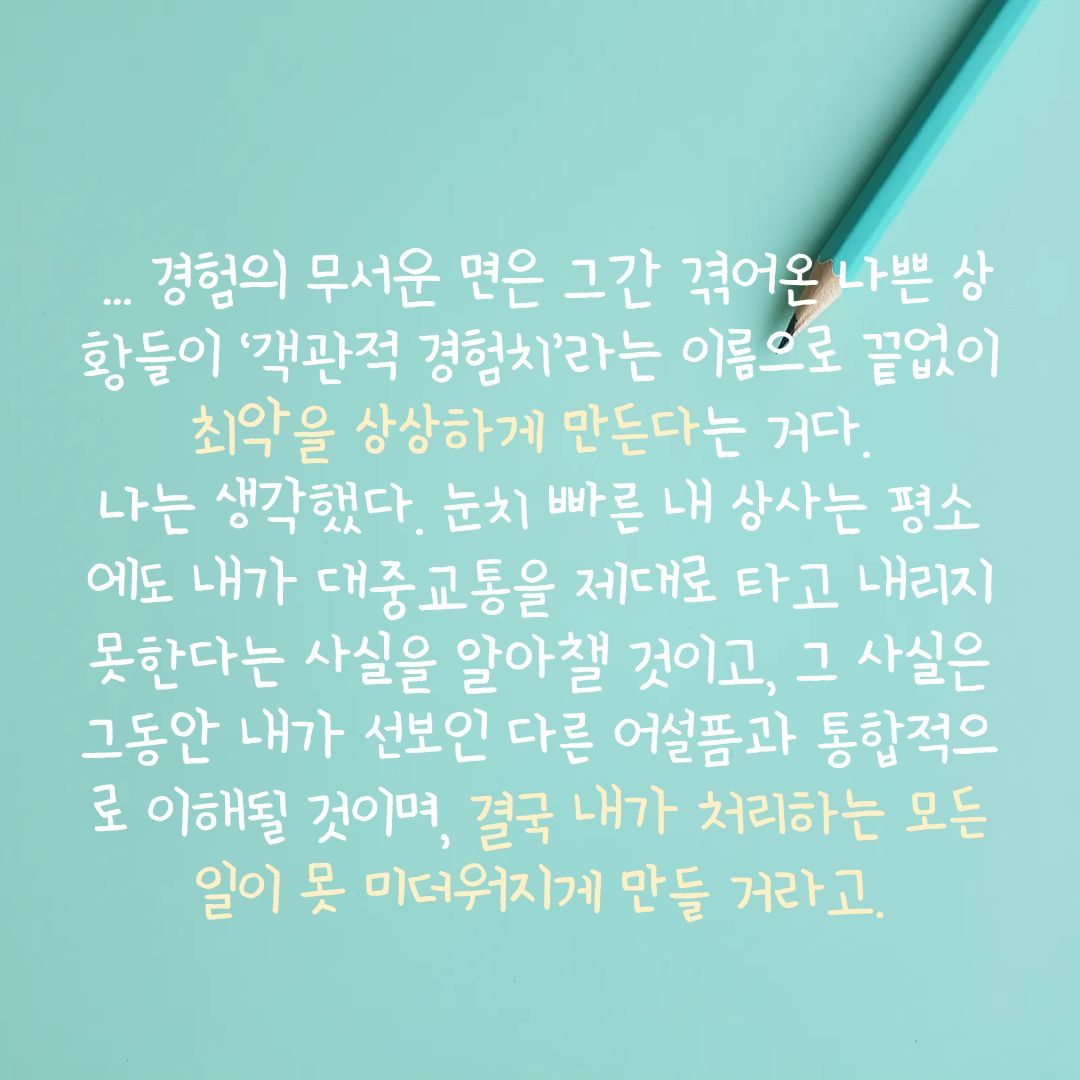 ... 경험의 무서운 면은 그간 겪어온 나쁜 상
황들이 ‘객관적 경험치’라는 이름으로 끝없이
최악을 상상하게 만든다는 거다.
나는 생각했다. 눈치 빠른 내 상사는 평소
에도 내가 대중교통을 제대로 타고 내리지
못한다는 사실을 알아챌 것이고, 그 사실은
그동안 내가 선보인 다른 어설픔과 통합적으
로 이해될 것이며, 결국 내가 처리하는 모든
일이 못 미더워지게 만들 거라고.